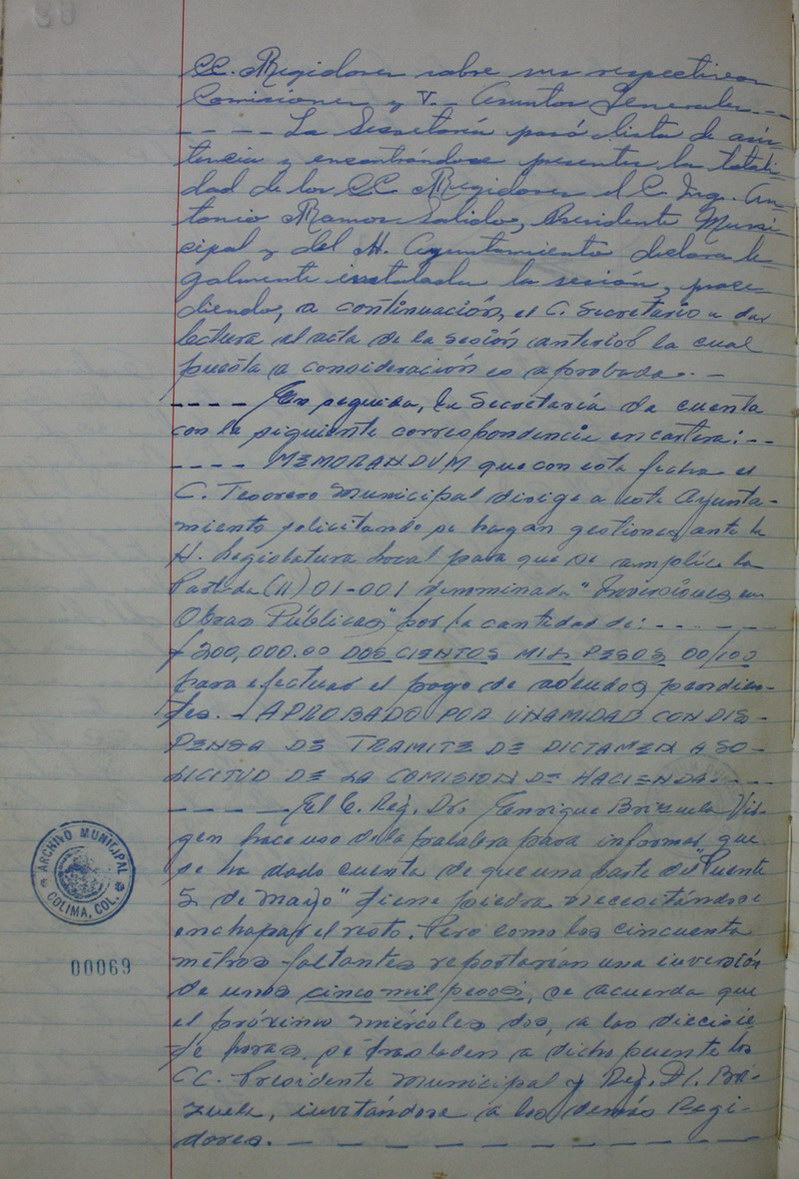 CC. Regidores sobre sus respectivas
Comisiones y V.- Asuntos Generales.---
---- La Secretaría pasó lista de asis-
tencia y encontrándose presentes la totali-
dad de los CC. Regidores el C. Ing. An-
tonio Ramos Salido, Presidente Muni-
cipal y del H. Ayuntamiento declara le-
galmente instalada la sesión, proce-
diendo, a continuación, el C. Secretario a dar
lectura al acta de la sesión anterior la cual
puesta a consideración es aprobada.- -
---- En seguida, la Secretaría da cuenta
con la siguiente correspondencia en cartera:--
---- MEMORANDUM que con esta fecha el
C. Tesorero Municipal dirige a este Ayunta-
miento solicitando se hagan gestiones ante la
H. Legislatura Local para que se amplíe la
Partida (11) 01-001 denominada "Inversiones en
Obras Públicas" por la cantidad de:-----
$200,000.00 DOSCIENTOS MIL PESOS 00/100
para efectuar el pago de adeudos pendien-
tes.- APROBADO POR UNAMIDAD CON DIS-
PENSA DE TRAMITE DE DICTAMEN A SO-
LICITUD DE LA COMISION DE HACIENDA.----
---- El C. Reg. Dr. Enrique Brizuela Vir-
gen hace uso de la palabra para informar que
se ha dado cuenta de que una parte del "Puente
5 de Mayo" tiene piedra necesitándose
enchapar el resto. Pero como los cincuenta
metros faltantes reportarían una inversión
de unos cinco mil pesos, se acuerda que
el próximo miércoles dos, a las diecisie-
te horas, se trasladen a dicho puente los
CC. Presidente Municipal y Reg. Dr. Bri-
zuela, invitándose a los demás Regi-
dores. - - - - - - - -
ARCHIVO MUNICIPAL
COLIMA, COL.
00069